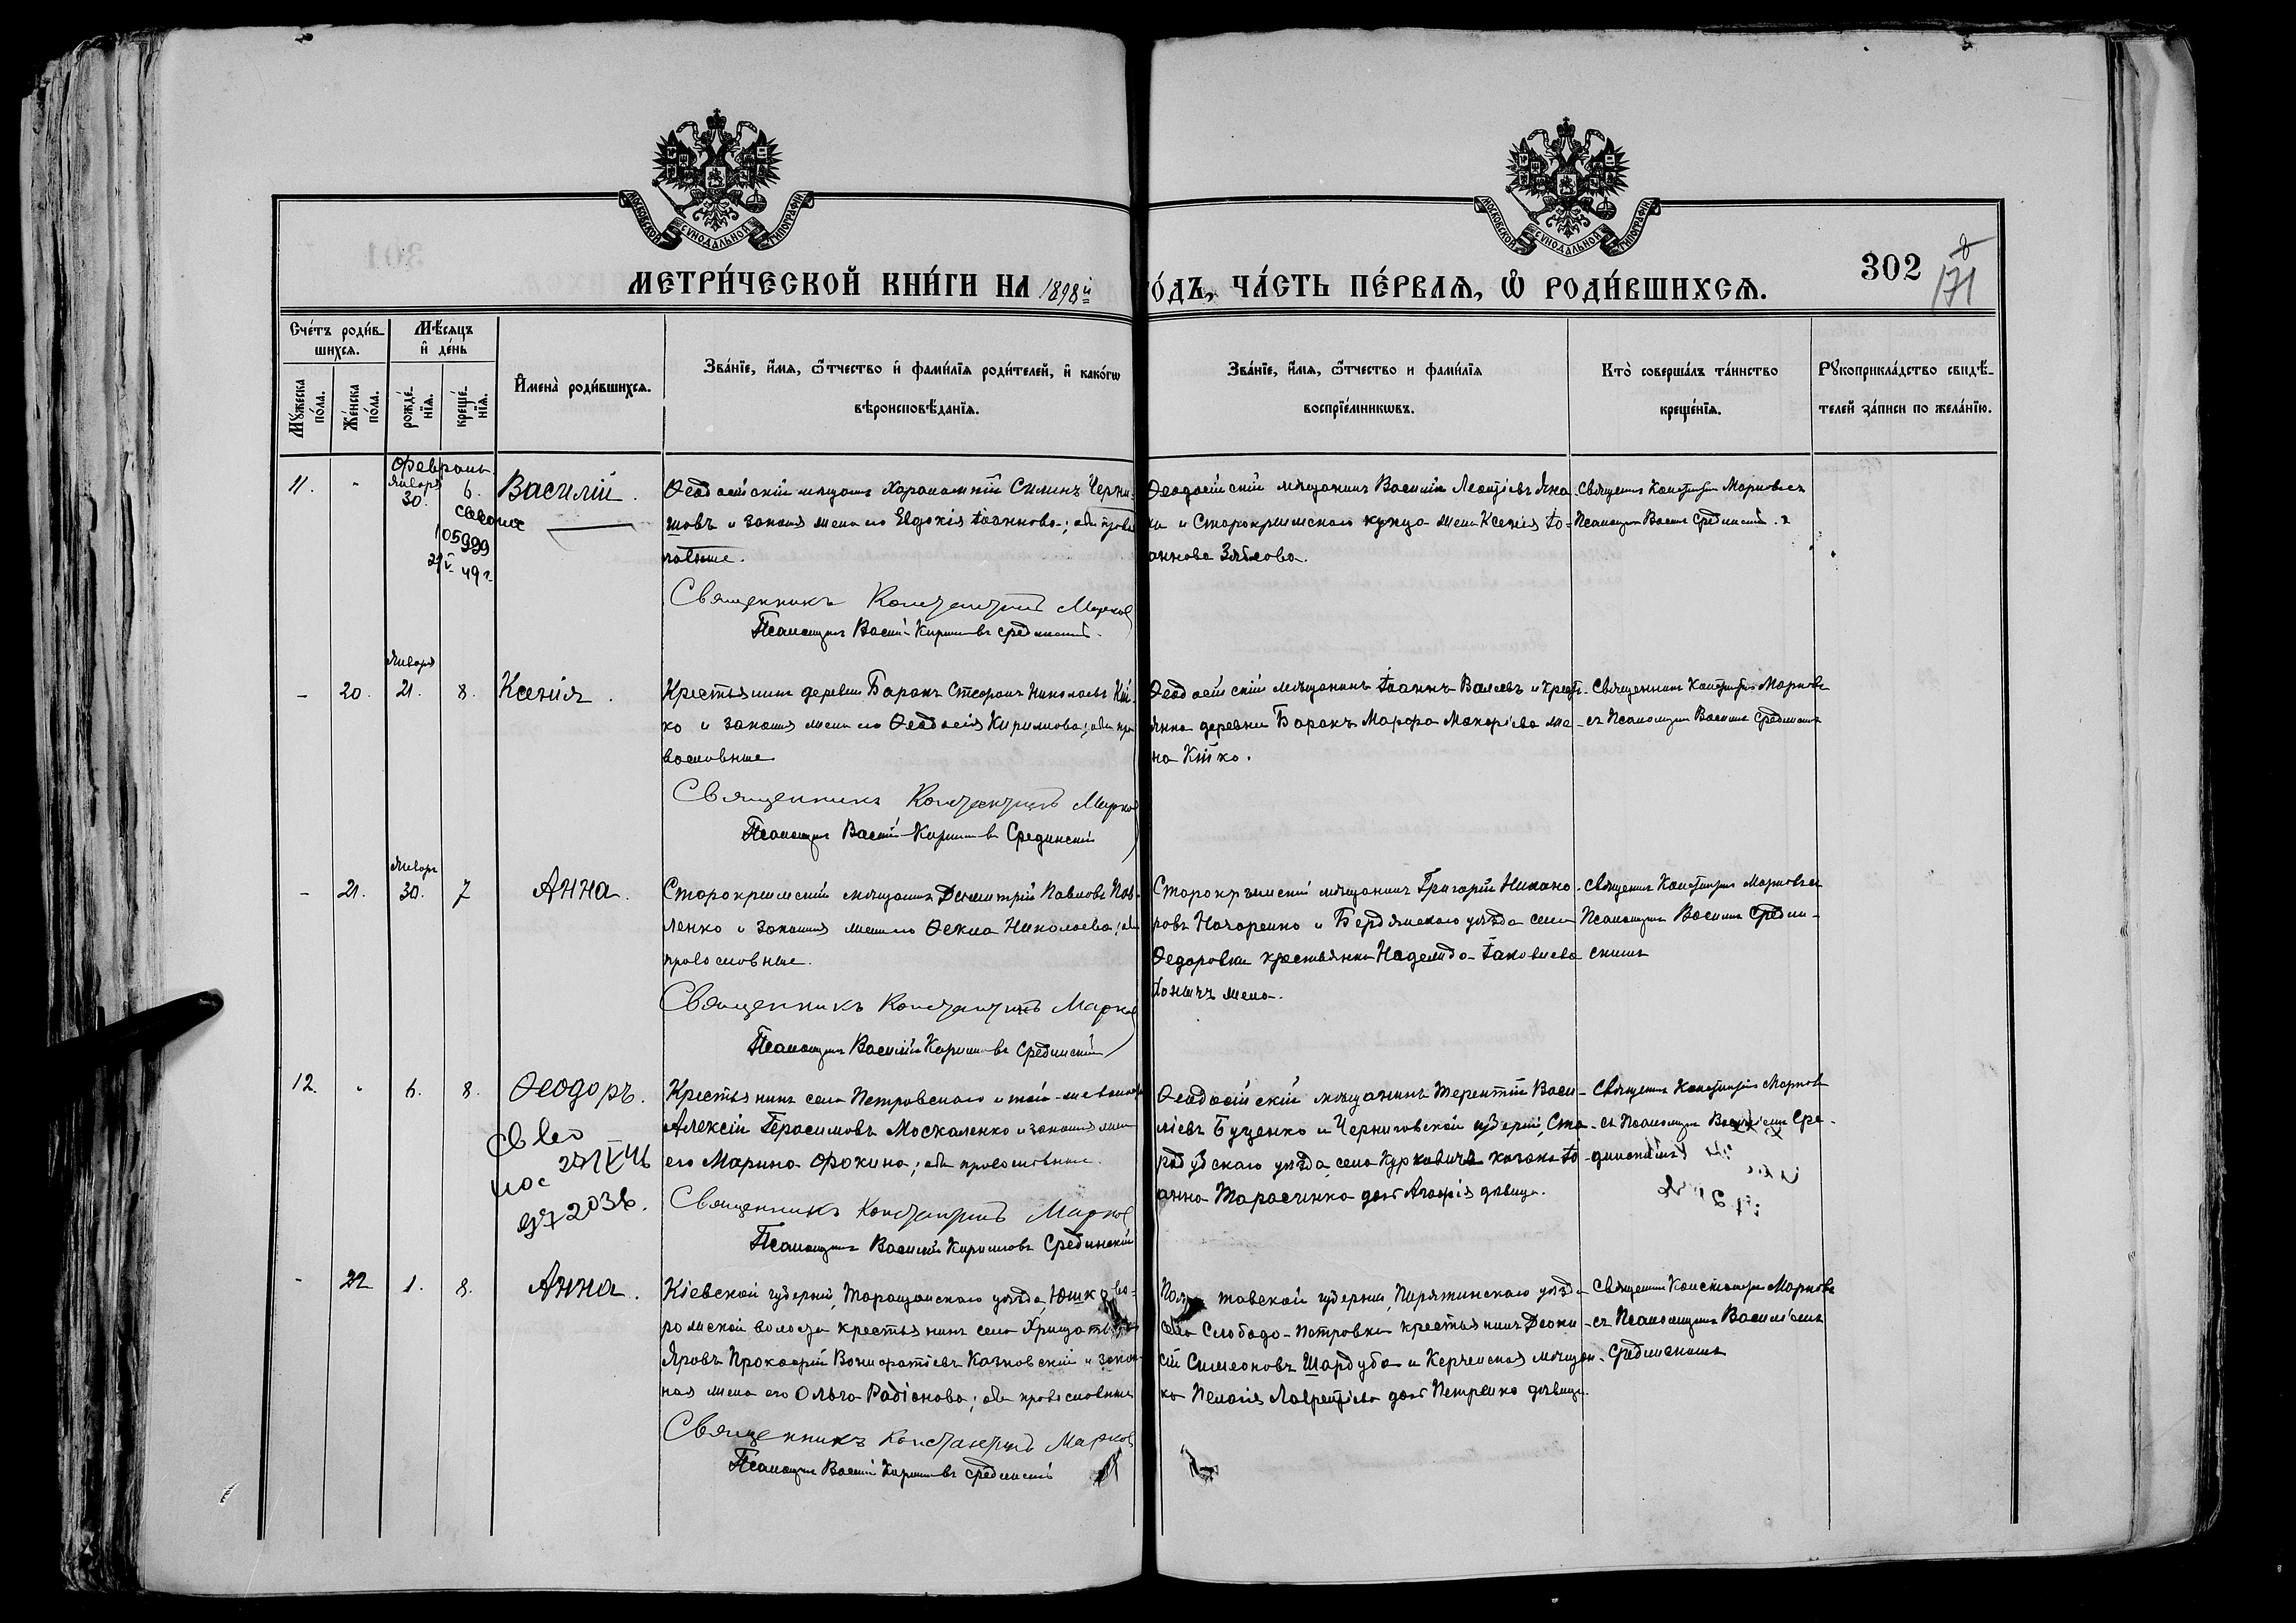 МОСКОВСКОЙ СУНОДАЛЬНОЙ ТИПОГРАФІИ
МОСКОВСКОЙ СУНОДАЛЬНОЙ ТИПОГРАФІИ
МЕТРИ́ЧЕСКОЙ КНИ́ГИ НА 1898й
О́ДЪ, ЧА́СТЬ ПЕ́РВАѦ, Ѡ҆ РОДИ́ВШИХСѦ.
302
171
Сче́тъ роди́в-
шихсѧ.
Мѣ́сѧцъ
и҆ де́нь
Мꙋ́жеска по́ла.
Же́нска по́ла.
рожде́-
нїѧ.
креще́-
нїѧ.
И҆мена̀ роди́вшихсѧ.
Зва́нїе, и҆́мѧ, ѻ҆́тчество и҆ фами́лїѧ роди́телей, и҆ како́гѡ
вѣроисповѣ́данїѧ.
Зва́нїе, и҆́мѧ, ѻ҆́тчество и фами́лїѧ
воспрїе́мникѡвъ.
Кто̀ соверша́лъ та́инство
креще́нїѧ.
Рꙋкоприкла́дство свидѣ́-
телей за́писи по жела́нїю.
Февраль
11. - Января 30. 6. Василій.
105999
21 V 49 г.
Ѳеодосійскій мѣщанинъ Харалампій Силинъ Черны-
шовъ и законная жена его Евдокія Іоаннова; оба право
славные.
Священникъ Константинъ Марковъ
Псаломщикъ Василій Кирилловъ Срединскій.
Ѳеодосійскій мѣщанинъ Василій Леонтіевъ
и Старокрымскаго купца жена Ксенія Іо-
аннова Зяблова.
Священникъ Константинъ Марковъ съ
Псаломщикомъ Василіемъ Срединскимъ.
- 20. Января 21. 8. Ксенія.
Крестьянинъ деревни Баракъ Стефанъ Николаевъ Кій-
ко и законная жена его Ѳеодосія Кириллова; оба пра
вославные
Священникъ Константинъ Марковъ
Псаломщикъ Василій Кирилловъ Срединскій
Ѳеодосійскій мѣщанинъ Іоаннъ Валевъ и крестья-
янка деревни Баракъ Марфа Макаріева же-
на Кійко.
Священникъ Константинъ Марковъ
съ Псаломщикомъ Василіемъ Срединскимъ
- 21. Январь 30. 7 Анна.
Старокрымскій мѣщанинъ Димитрій Павловъ Пав-
ленко и законная жена его Ѳекла Николаева; оба
православные.
Священникъ Константинъ Марковъ
Псаломщикъ Василій Кирилловъ Срединскій
Старокрымскій мѣщанинъ Григорій Никано-
ровъ Назаренко и Бердянскаго уѣзда села
Ѳедоровки крестьянка Надежда Іаковлева
жена.
Священникъ Константинъ Марковъ съ
Псаломщикомъ Василіемъ Средин-
скимъ
12. - 6. 8. Ѳеодоръ.
Крестьянинъ села Петровскаго и той-же волости
Алексій Герасимовъ Москаленко и законная жена
его Марина Фокина; оба православные.
Священникъ Константинъ Марковъ
Псаломщикъ Василій Кирилловъ Срединскій
Ѳеодосійскій мѣщанинъ Терентій Васи-
ліевъ Буценко и Черниговской губерніи, Ста-
родубскаго уѣзда села Курковичъ казака Іо-
анна Тарасенко дочь Агафія дѣвица.
Священникъ Константинъ Марковъ
съ Псаломщикомъ Василіемъ Сре-
динскимъ
- 22 1. 8. Анна.
Кіевской губерніи, Таращанскаго уѣзда, Юшково-
рожской волости крестьянинъ села
Яровъ Прокофій Вонифатіевъ Казновскій и закон-
ная жена его Ольга Радіонова; оба православные
Священникъ Константинъ Марковъ
Псаломщикъ Василій Кирилловъ Срединскій
Полтавской губерніи, Пирятинскаго уѣзда
села Слободо-Петровки крестьянинъ Діони-
сій Симеоновъ Шардуба и Керченская мѣщан-
ка Пелагія Лаврентіева дочь Петренко дѣвица.
Священникъ Константинъ Марковъ
съ Псаломщикомъ Василіемъ
Срединскимъ